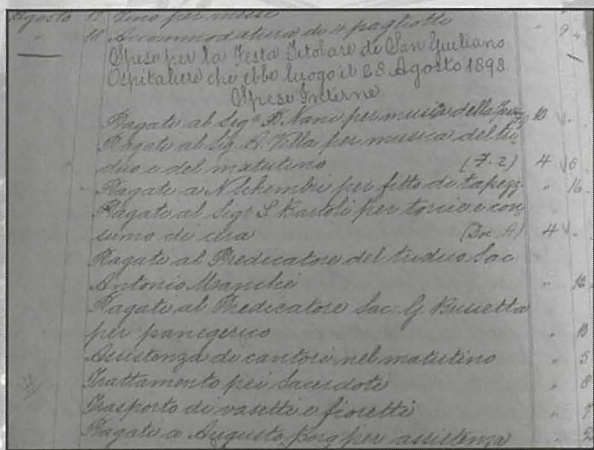 Agosto 12 Vino per messe
" 18 Accommodatura di 4 pagliotti 9
Spese per la Festa Titolare di San Giuliano
Ospitaliere che ebbe luogo il 28 Agosto 1898
Spese Interne
Pagate al Sigr P. Nani per musica della 10 " .
Pagate al Sig. A. Villa per musica del tri-
duo e del matutino (7.2) 4 6
Pagate a N Schembri per fitto di " 16
Pagate al Sigr S. Bartoli per torcie e con
sumo di cera (Doc. A) 4 .
Pagate al Predicatore del triduo Sac.
Antonio Manchè " 12
Pagate al Predicatore Sac. G. Bussetta
per panegerico " 10
Assistenza di cantori nel matutino " 5
Trattamento pei Sacerdoti " 8
Trasporto di vasetti e fioretti "
Pagate a Augusto Borg per assistenza "